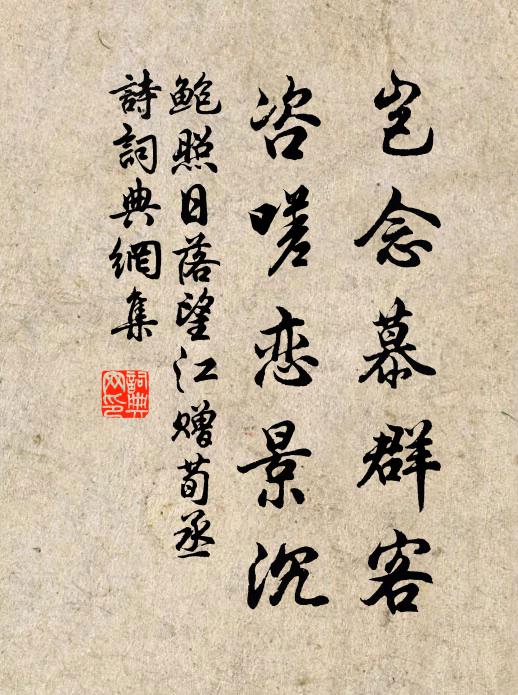 岂念慕群客
咨嗟恋景沉
鲍照日落望江赠荀丞
詩詞典網集
詞典网印